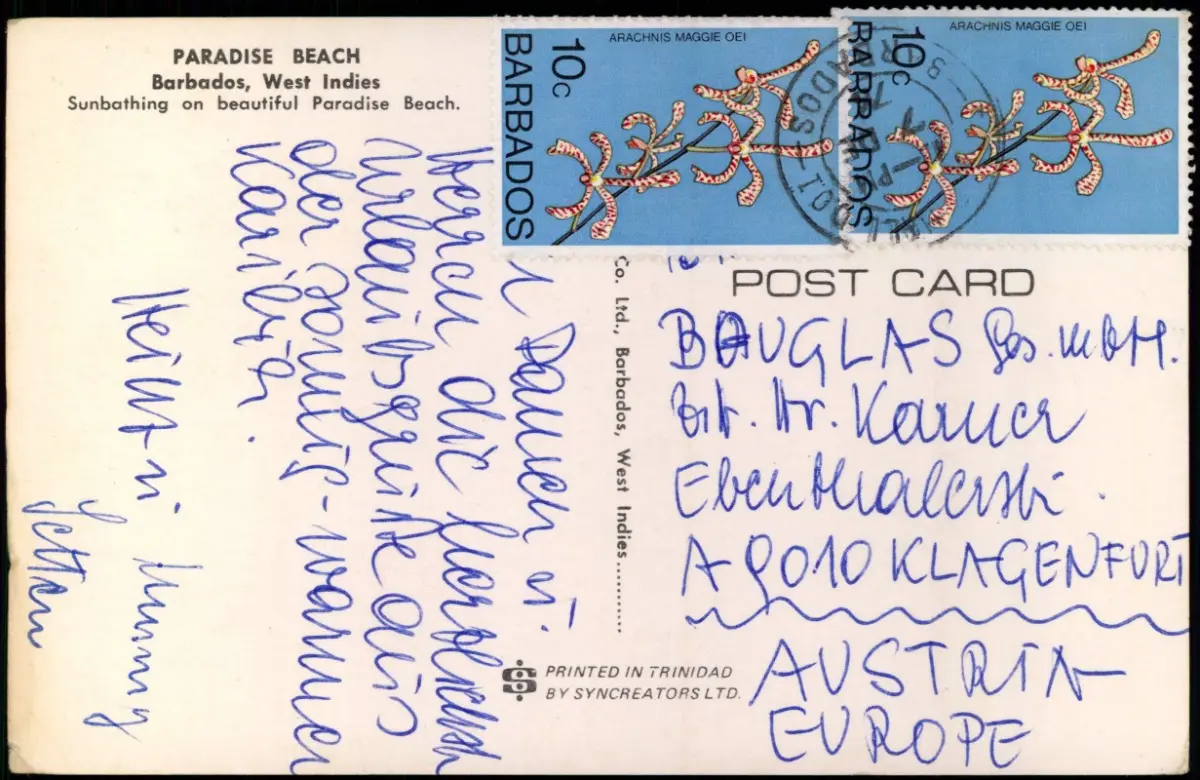 PARADISE BEACH
Barbados, West Indies
Sunbathing on beautiful Paradise Beach.
ARACHNIS MAGGIE OEI
10c
BARBADOS
ARACHNIS MAGGIE OEI
10c
BARBADOS
BARBADOS
Damen u.
Herren die herzlichsten
Urlaubsgrüße aus
der sonnig-warmen
Karibik.
Co. Ltd., Barbados, West Indies...........
POST CARD
BAUGLAS Ges.mbH.
Karner
Ebenthalerstr.
A 9010 KLAGENFURT
AUSTRIA
EUROPE
PRINTED IN TRINIDAD
BY SYNCREATORS LTD.